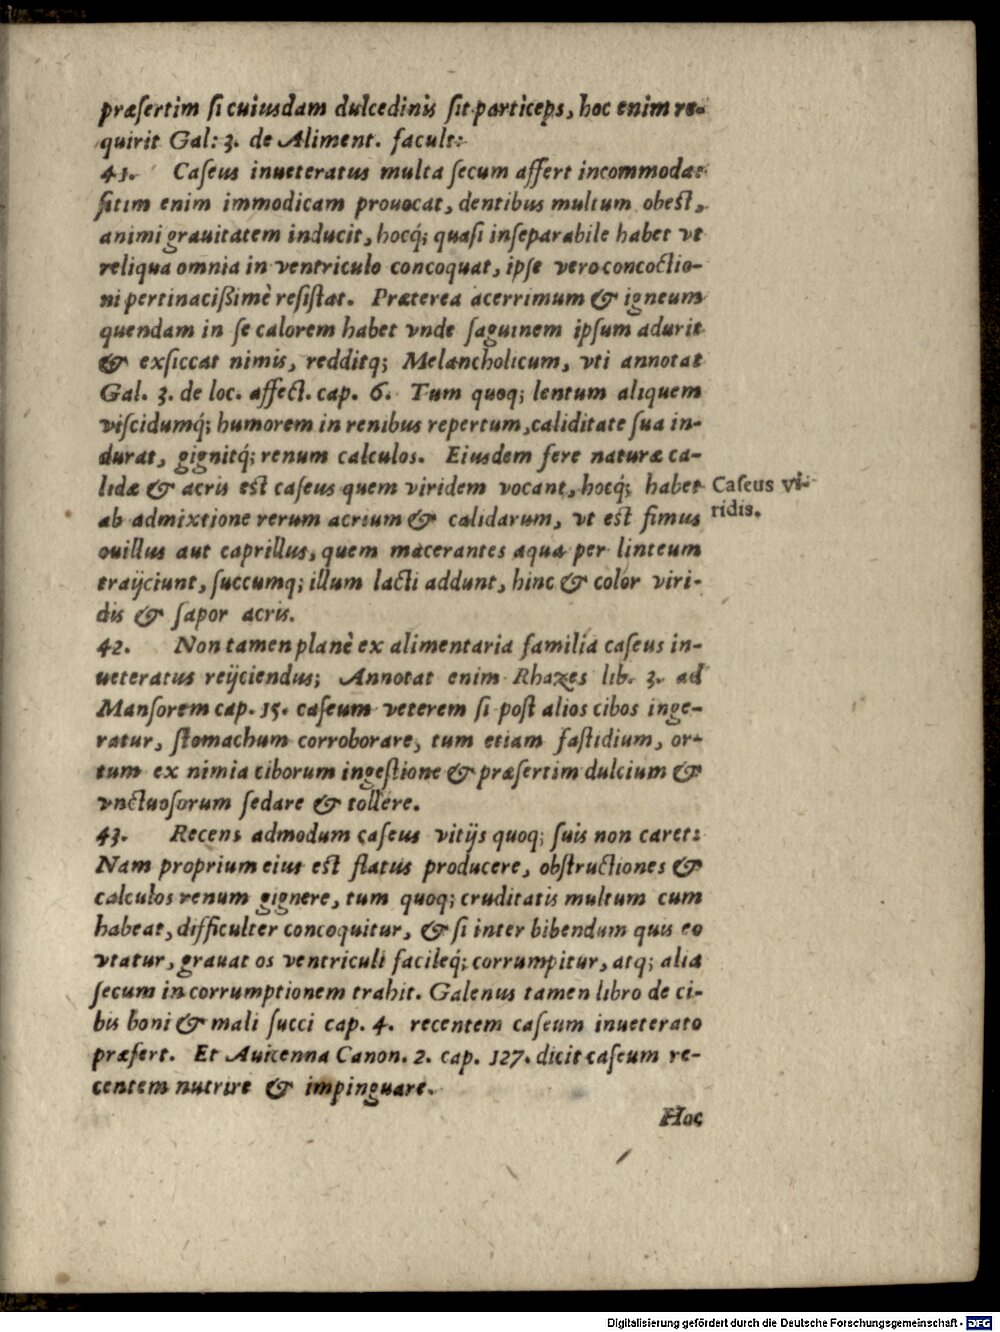 præſertim ſi cuiusdam dulcedinis ſit particeps, hoc enim re-
quirit Gal: 3. de Aliment. facult:
41. Caſeus inueteratus multa ſecum affert incommoda:
ſitim enim immodicam prouocat, dentibus multum obeſt,
animi grauitatem inducit, hocq́; quaſi inſeparabile habet vt
reliqua omnia in ventriculo concoquat, ipſe vero concoctio-
ni pertinacißimè reſiſtat. Præterea acerrimum & igneum
quendam in ſe calorem habet vnde ſaguinem ipſum adurit
& exſiccat nimis, redditq; Melancholicum, vti annotat
Gal. 3. de loc. affect. cap. 6. Tum quoq; lentum aliquem
viſcidumq́; humorem in renibus repertum, caliditate ſua in-
durat, gignitq́; renum calculos. Eiusdem fere naturæ ca-
lidæ & acris eſt caſeus quem viridem vocant, hocq; habet
Caſeus vi-
ridis.
ab admixtione rerum acrium & calidarum, vt eſt fimus
ouillus aut caprillus, quem macerantes aqua per linteum
traijciunt, ſuccumq; illum lacti addunt, hinc & color viri-
dis & ſapor acris.
42. Non tamen planè ex alimentaria familia caſeus in-
ueteratus reijciendus; Annotat enim Rhazes lib. 3. ad
Manſorem cap. 15. caſeum veterem ſi poſt alios cibos inge-
ratur, ſtomachum corroborare, tum etiam faſtidium, or-
tum ex nimia ciborum ingeſtione & præſertim dulcium &
vnctuoſorum ſedare & tollere.
43. Recens admodum caſeus vitijs quoq; ſuis non caret:
Nam proprium eius eſt flatus producere, obſtructiones &
calculos renum gignere, tum quoq; cruditatis multum cum
habeat, difficulter concoquitur, & ſi inter bibendum quis eo
vtatur, grauat os ventriculi facileq́; corrumpitur, atq; alia
ſecum in corrumptionem trahit. Galenus tamen libro de ci-
bis boni & mali ſucci cap. 4. recentem caſeum inueterato
præfert. Et Auicenna Canon. 2. cap. 127. dicit caſeum re-
centem nutrire & impinguare.
Hoc
Digitalisierung gefördert durch die Deutsche Forschungsgemeinschaft - DFG